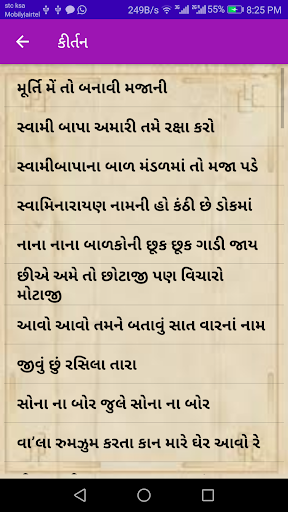 stc ksa
Mobily|airtel
249B/s
8:25 PM
કીર્તન
મૂર્તિ મેં તો બનાવી મજાની
સ્વામી બાપા અમારી તમે રક્ષા કરો
સ્વામીબાપાના બાળ મંડળમાં તો મજા પડે
સ્વામિનારાયણ નામની હો કંઠી છે ડોકમાં
નાના નાના બાળકોની છૂક છૂક ગાડી જાય
છીએ અમે તો છોટાજી પણ વિચારો
મોટાજી
આવો આવો તમને બતાવું સાત વારનાં નામ
જીવું છું રસિલા તારા
સોના ના બોર જુલે સોના ના બોર
વા'લા રુમઝુમ કરતા કાન મારે ઘેર આવો રે